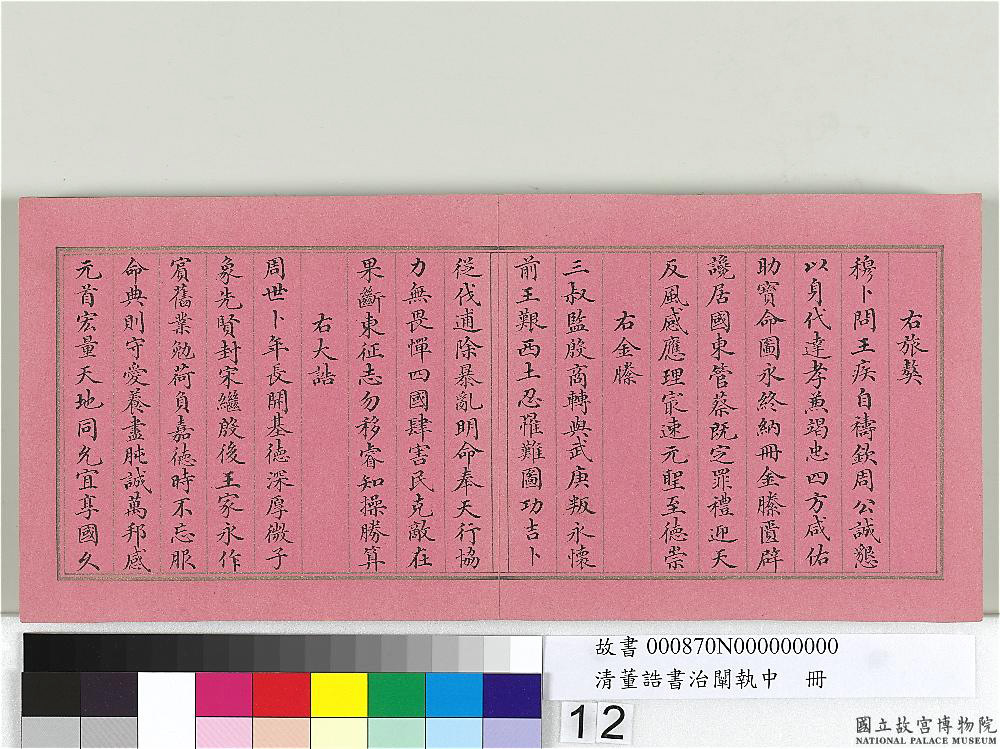 右旅獒
穆卜問王疾自禱欽周公誠懇
以身代達孝兼竭忠四方咸佑
助寶命圖永終納冊金縢匱辟
讒居國東管蔡既定罪禮迎天
反風感應理㝡速元聖至德崇
右金縢
三叔監殷商轉與武庚叛永懷
前王艱西土忍罹難圖功吉卜
從伐逋除暴亂明命奉天行協
力無畏憚四國肆害民克敵在
果斷東征志勿移睿知操勝算
右大誥
周世卜年長開基德深厚微子
象先賢封宋繼殷後王家永作
賓舊業勉荷負嘉德時不忘服
命典則守愛養盡肫誠萬邦感
元首宏量天地同允宜享國久
故書 000870N000000000
清董誥書治闡執中 冊
12
國立故宮博物院
NATIONAL PALACE MUSEUM